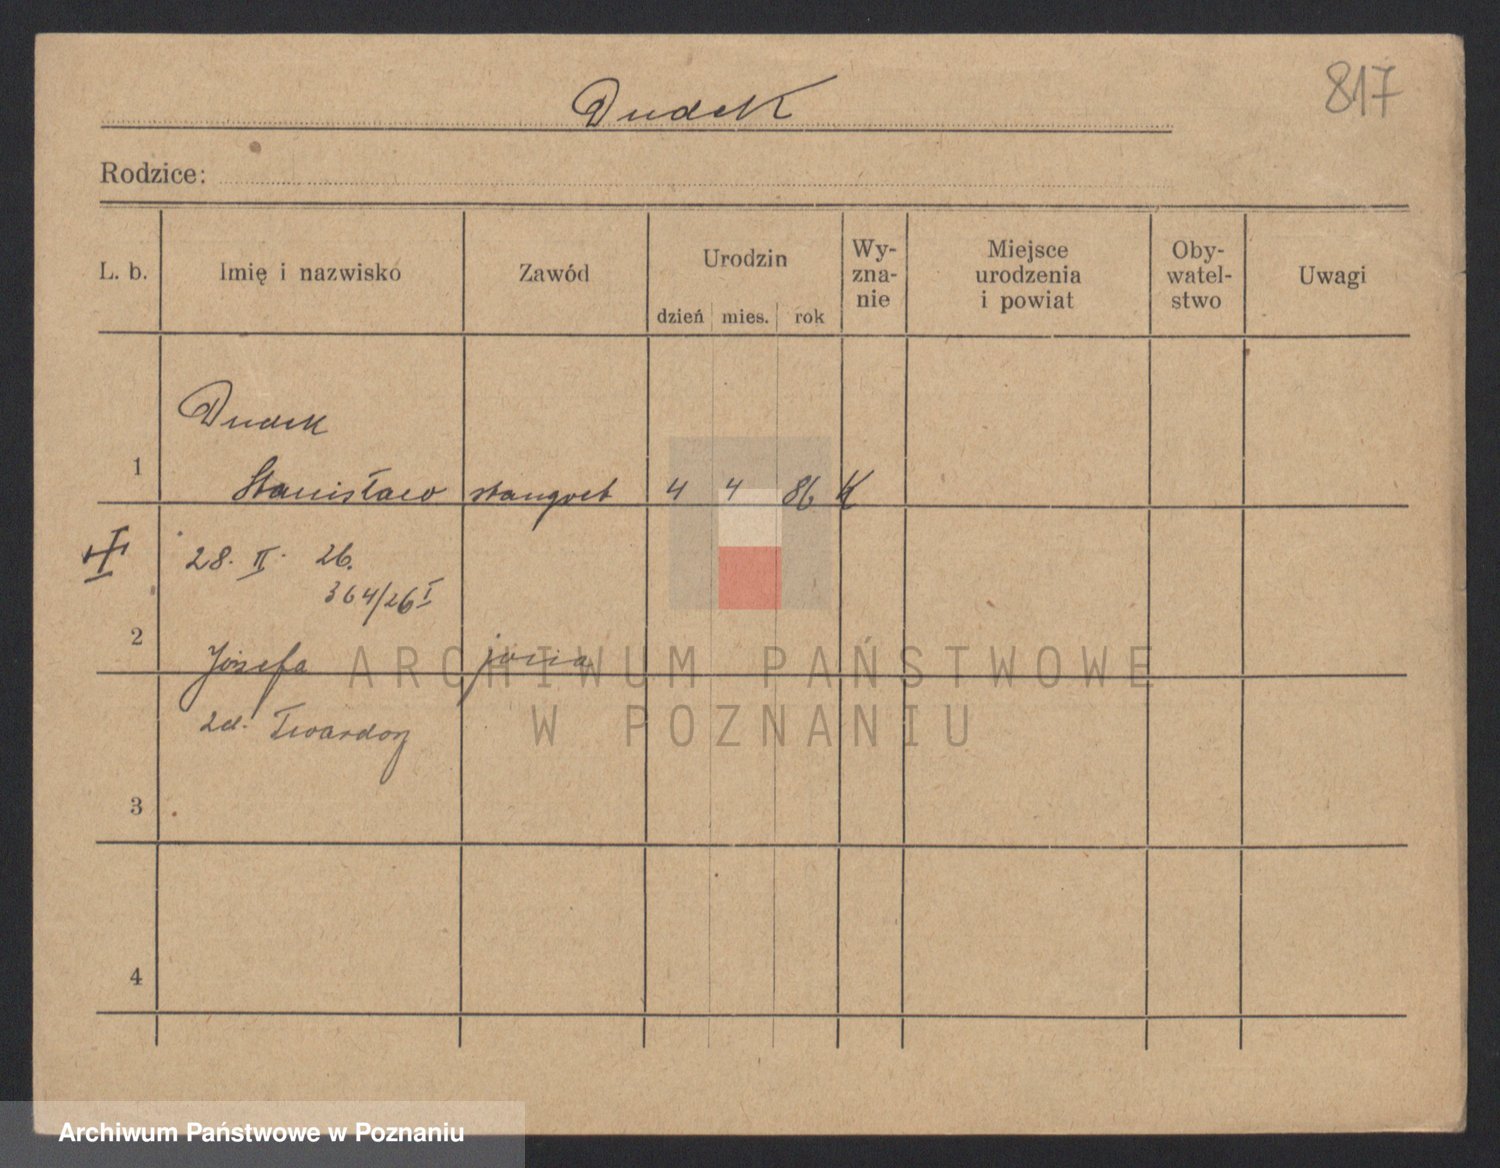 817
Dudek
Rodzice:
L. b. Imię i nazwisko Zawód Urodzin dzień mies. rok Wy-zna-nie Miejsce urodzenia i powiat Oby-watel-stwo Uwagi
Dudek
1 Stanisław stangret 4 4 86 K
28. II. 26.
364/26 I
2 Józefa żona
zd. Twardoy
3
4
ARCHIWUM PAŃSTWOWE
W POZNANIU
Archiwum Państwowe w Poznaniu